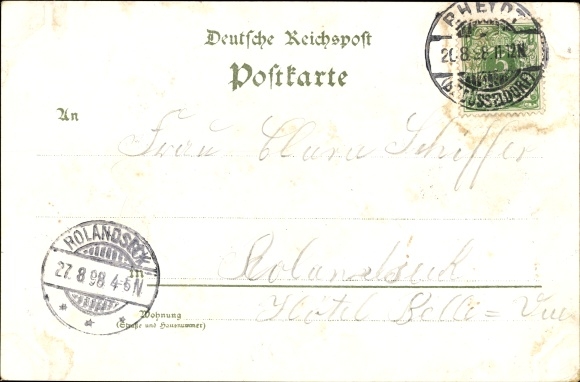 Deutsche Reichspost
Postkarte
RHEYDT
8.98 11-12N
5
(DÜSSELDORF)
An
Frau Clara Schiffer
ROLANDSECK
27.8.98 4-5N
in
Rolandseck
Hôtel Belle=Vue
Wohnung
(Straße und Hausnummer)